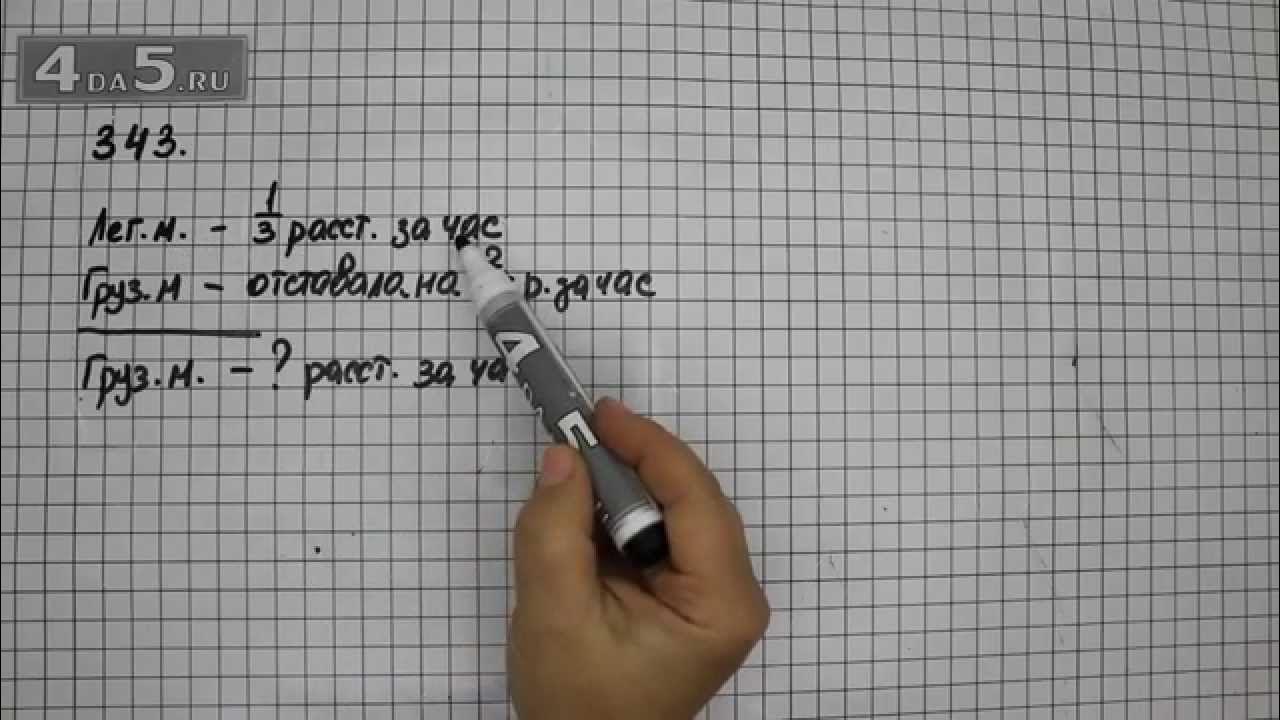 4DA5.RU
343.
Лег.м. - 1/3 расст. за час
Груз.м - отставала на р. за час
Груз.м. - ? расст. за